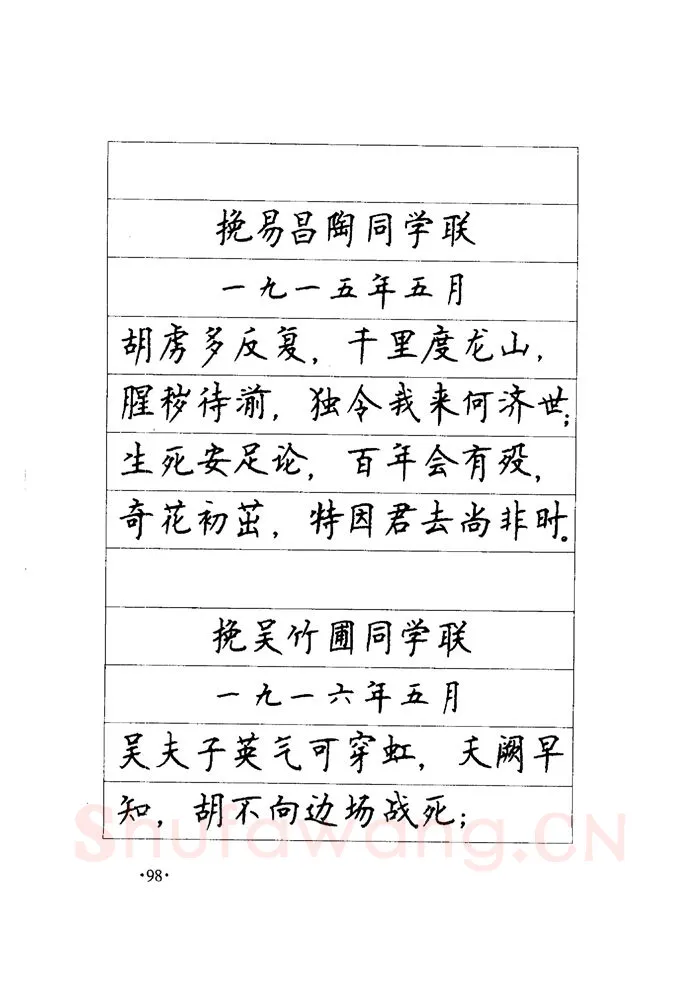 挽易昌陶同学联
一九一五年五月
胡虏多反复，千里度龙山，
腥秽待湔，独令我来何济世；
生死安足论，百年会有殁，
奇花初茁，特因君去尚非时。
挽吴竹圃同学联
一九一六年五月
吴夫子英气可穿虹，夭阙早
知，胡不向边场战死；
Shufawang.CN
·98·